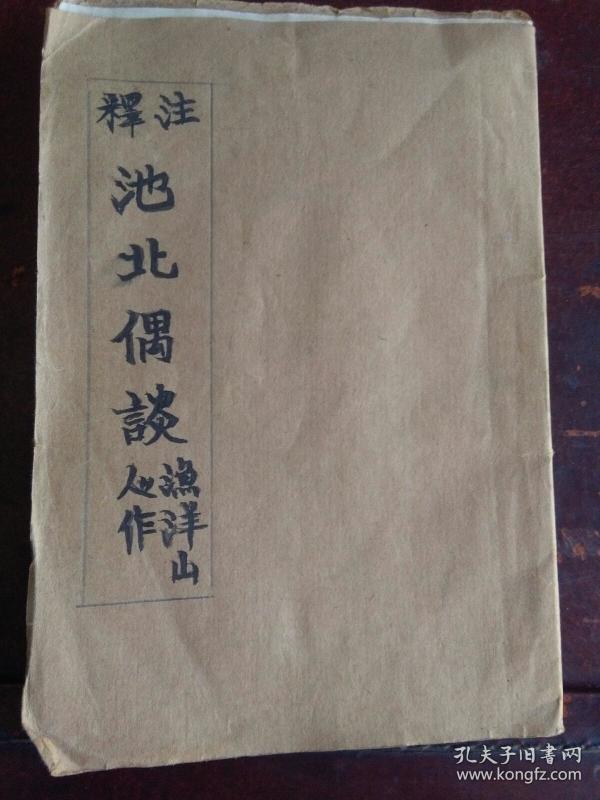 注釋
池北偶談
漁洋山
人作
孔夫子旧書网
www.kongfz.com